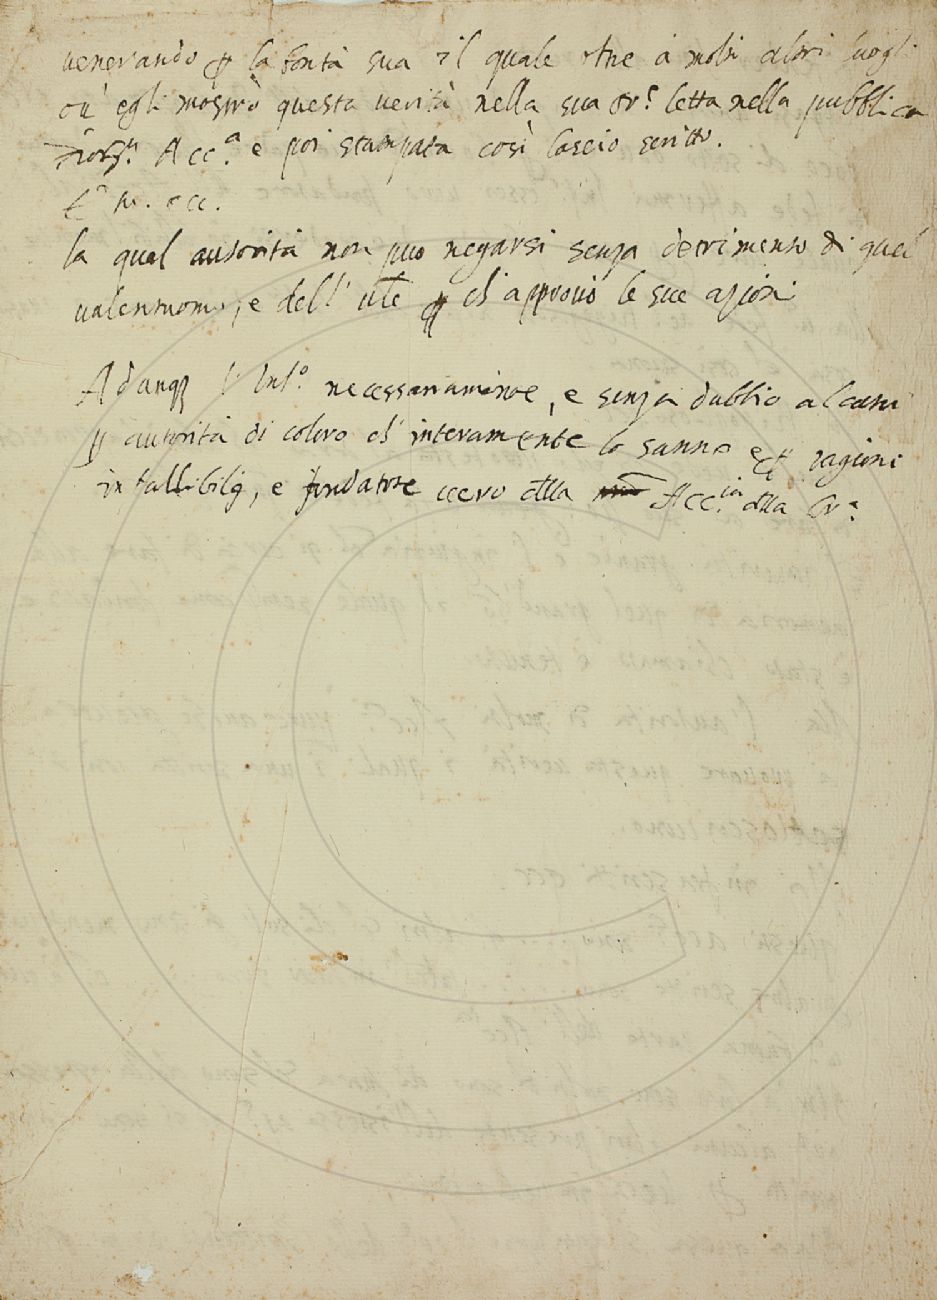 venerando ꝑ la bontà sua il quale oltre à molti altri luoghi
ou' egli mostrò questa uerità nella sua or.e letta nella pubblica
Acc.a e poi stampata così lasciò scritto.
ecc.
la qual autorità non può negarsi senza detrimento di quel
valentuomo, e dell' ꝑ ch' approuò le sue azioni
Adunq l' Inf.o necessariamente, e senza dubbio alcuno
ꝑ autorità di coloro ch' interamente lo sanno e ꝑ ragioni
infallibili, e fondatore uero della Acc.ia della Cr.a